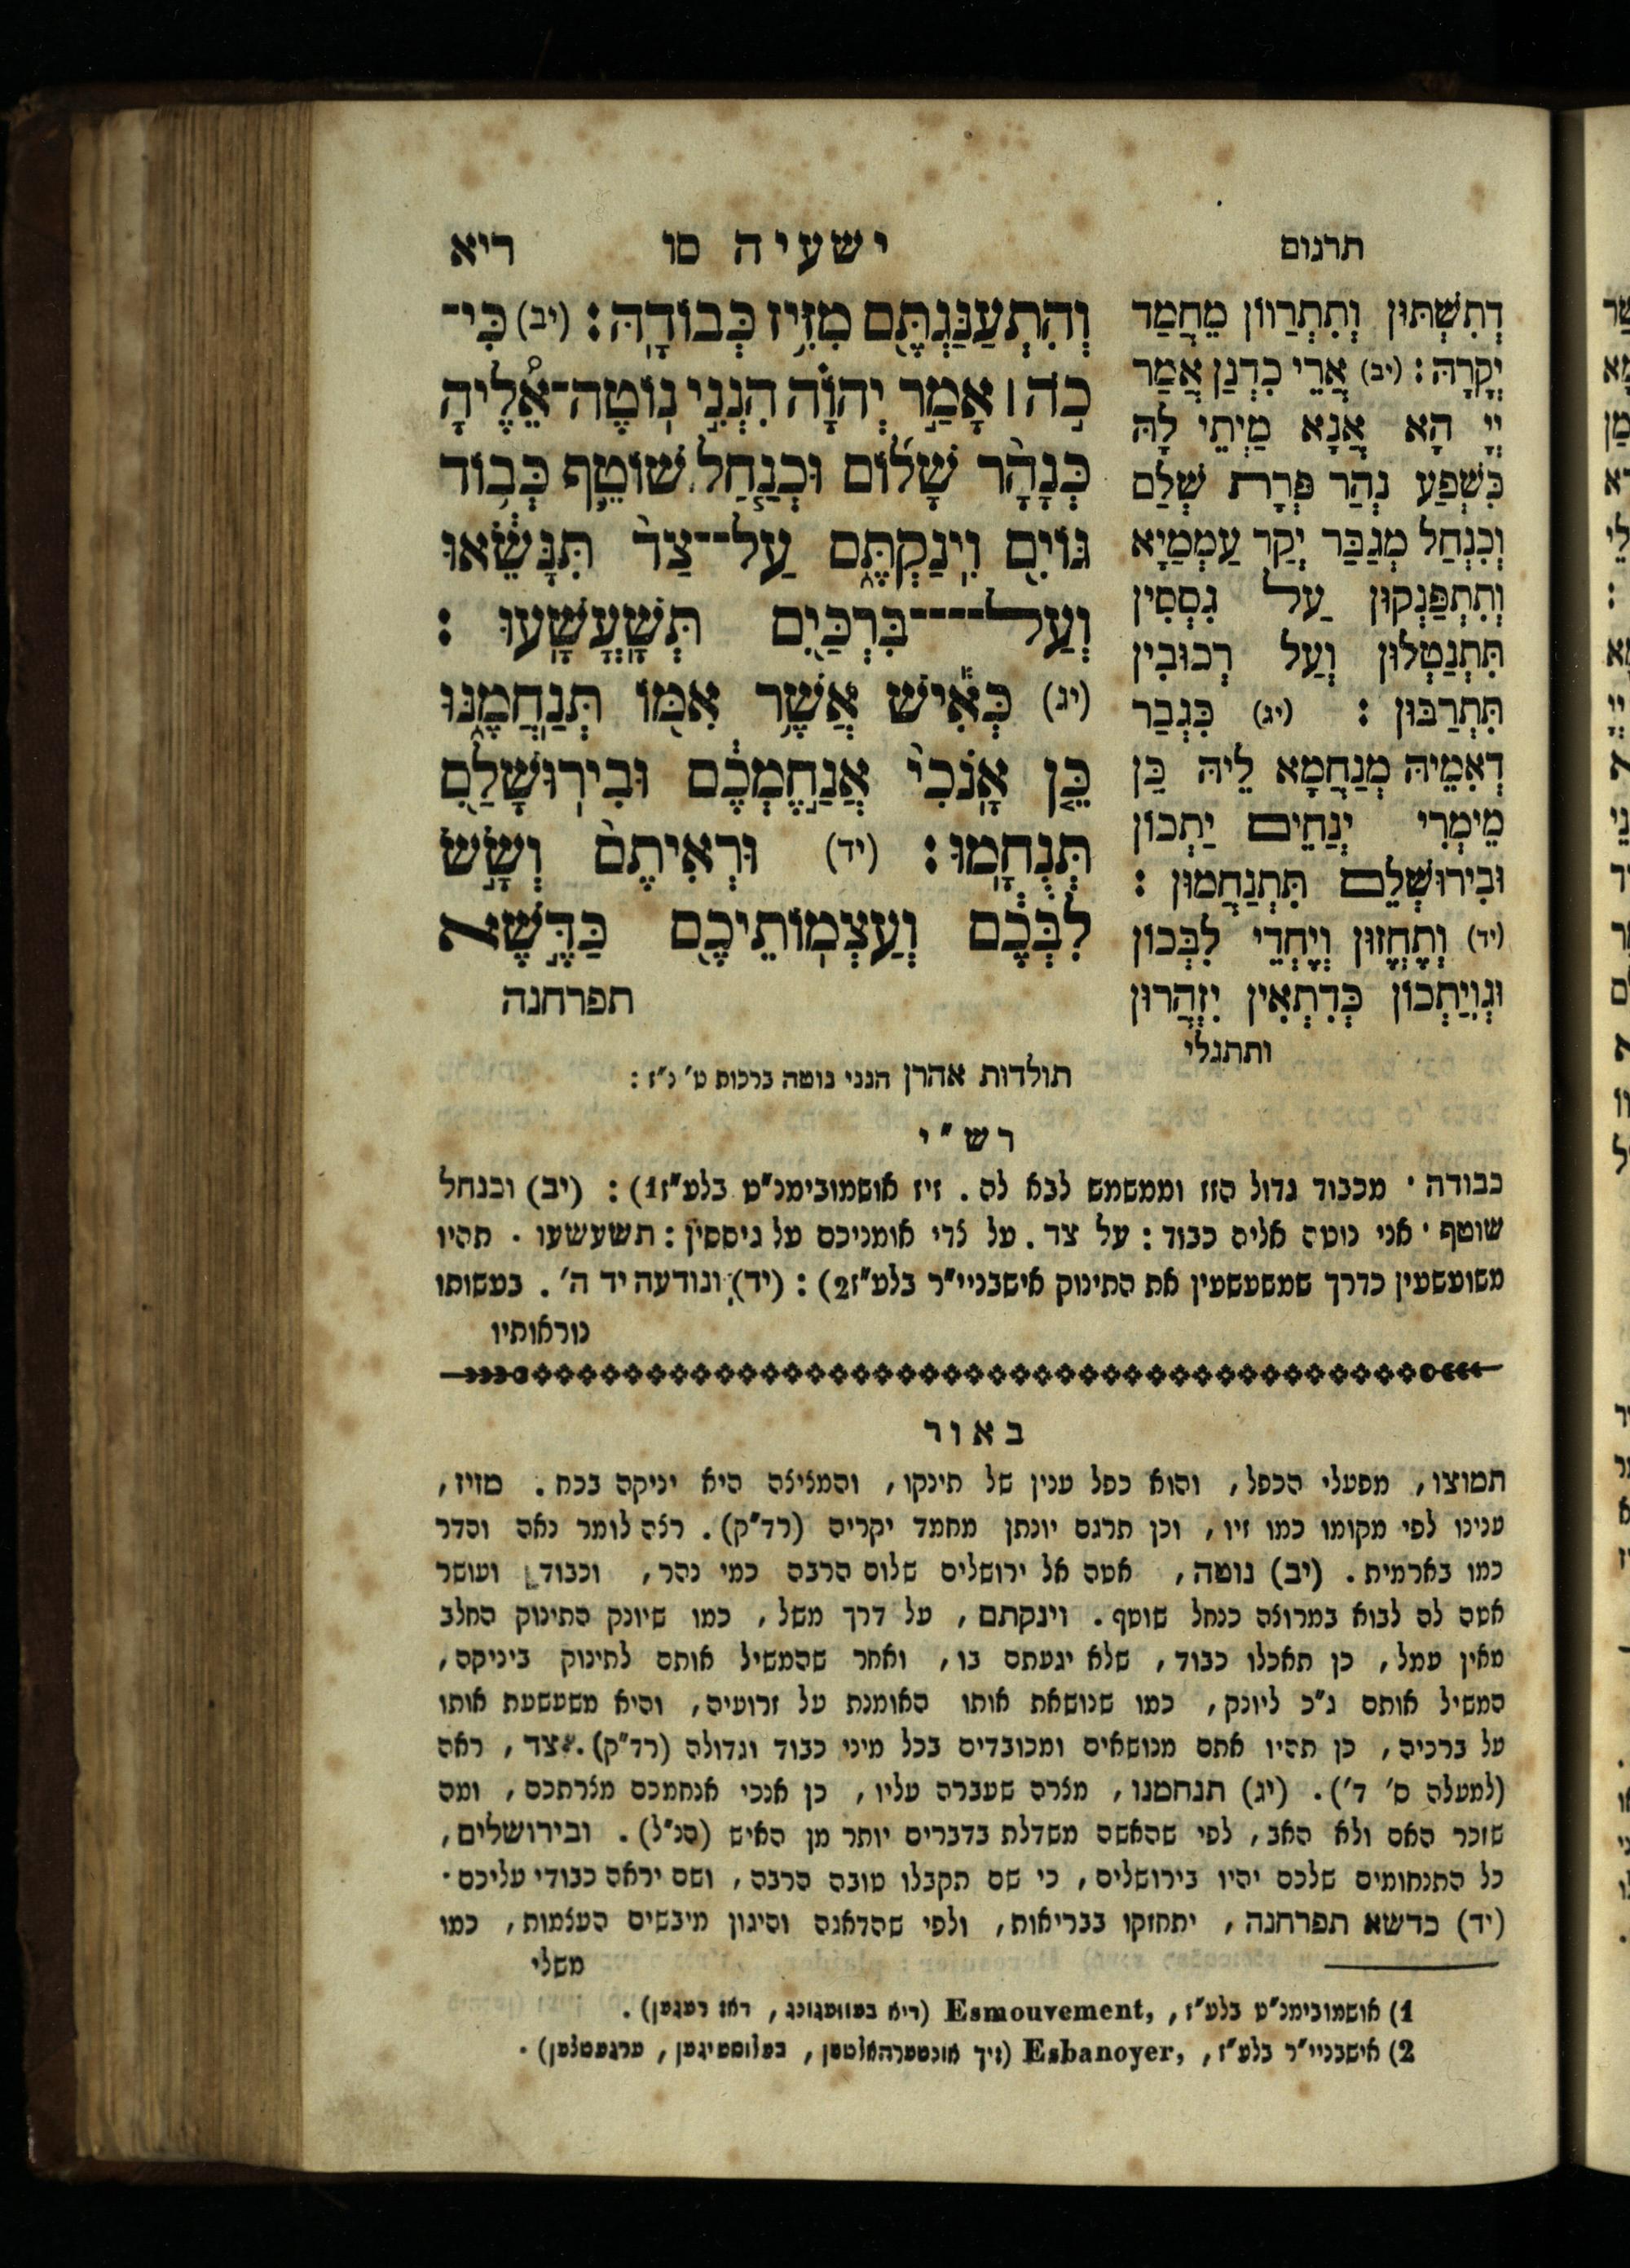 תרגום
דְתִשְׁתּוּן וְתִתְרַווֹן מֵחֲמַד
יְקָרָהּ : (יב) אֲרֵי כִדְנַן אֲמַר
יְיָ הָא אֲנָא מַיְתֵי לָהּ
כִּשְׁפַע נְהַר פְּרָת שְׁלַם
וּכְנַחַל מִגַבַּר יְקַר עַמְמַיָא
וְתִתְפַּנְקוּן עַל גִסְסִין
תִּתְנַטְלוּן וְעַל רְכוּבִין
תִּתְרַבּוּן : (יג) כִּגְבַר
דְאִמֵיהּ מְנַחֲמָא לֵיהּ כֵּן
מֵימְרִי יְנַחֵים יַתְכוֹן
וּבִירוּשְׁלֵם תִּתְנַחֲמוּן :
(יד) וְתֶחֱזוּן וְיֶחֱדֵי לִבְּכוֹן
וּגְוִיַתְכוֹן כְּדִתְאִין יִזְהֲרוּן
ותתגלי
ישעיה סו ריא
וְהִתְעַנַּגְתֶּם מִזִּיז כְּבוֹדָהּ : (יב) כִּי־
כֹה ׀ אָמַר יְהוָֹה הִנְנִי נוֹטֶה־אֵלֶיהָ
כְּנָהָר שָׁלוֹם וּכְנַחַל שׁוֹטֵף כְּבוֹד
גּוֹיִם וִינַקְתֶּם עַל־צַד תִּנָּשֵׂאוּ
וְעַל־בִּרְכַּיִם תְּשָׁעֳשָׁעוּ :
(יג) כְּאִישׁ אֲשֶׁר אִמּוֹ תְּנַחֲמֶנּוּ
כֵּן אָנֹכִי אֲנַחֶמְכֶם וּבִירוּשָׁלִַם
תְּנֻחָמוּ : (יד) וּרְאִיתֶם וְשָׂשׂ
לִבְּכֶם וְעַצְמוֹתֵיכֶם כַּדֶּשֶׁא
תפרחנה
תולדות אהרן הנני נוטה ברכות ט׳ נ״ז :
רש״י
כבודה · מכבוד גדול הזז וממשמש לבא לה . זיז אושמובימנ״ט בלע״ז1) : (יב) וכנחל
שוטף · אני נוטה אליה כבוד : על צד . על צדי אומניכם על גיססין : תשעשעו . תהיו
משועשעין כדרך שמשעשעין את התינוק אישבנייי״ר בלע״ז2) : (יד) ונודעה יד ה׳ . בעשותו
נוראותיו
באור
תמוצו , מפעלי הכפל , והוא כפל ענין של תינקו , והמציצה היא יניקה בכח . מזיז ,
ענינו לפי מקומו כמו זיו , וכן תרגם יונתן מחמד יקריה (רד״ק) . רצה לומר נאה והדר
כמו בארמית . (יב) נוטה , אטה אל ירושלים שלום הרבה כמי נהר , וכבוד ועושר
אטה לה לבוא במרוצה כנחל שוטף . וינקתם , על דרך משל , כמו שיונק התינוק החלב
מאין עמל , כן תאכלו כבוד , שלא יגעתם בו , ואחר שהמשיל אותם לתינוק ביניקה ,
המשיל אותם ג״כ ליונק , כמו שנושאת אותו האומנת על זרועיה , והיא משעשעת אותו
על ברכיה , כן תהיו אתם מנושאים ומכובדים בכל מיני כבוד וגדולה (רד״ק) . צד , ראה
(למעלה ס׳ ד׳) . (יג) תנחמנו , מצרה שעברה עליו , כן אנכי אנחמכם מצרתכם , ומה
שזכר האם ולא האב , לפי שהאשה משדלת בדברים יותר מן האיש (הנ״ל) . ובירושלים ,
כל התנחומים שלכם יהיו בירושלים , כי שם תקבלו טובה הרבה , ושם יראה כבודי עליכם ·
(יד) כדשא תפרחנה , יתחזקו בבריאות , ולפי שהדאגה והיגון מיבשים העצמות , כמו
משלי
1) אושמובימנ״ט בלע״ז , Esmouvement, (דיא בעוועגונג , דאז רעגען) .
2) אישבנייי״ר בלע״ז , Esbanoyer, (זיך אונטערהאלטען , בעלוסטיגען , ערגעטצען) .